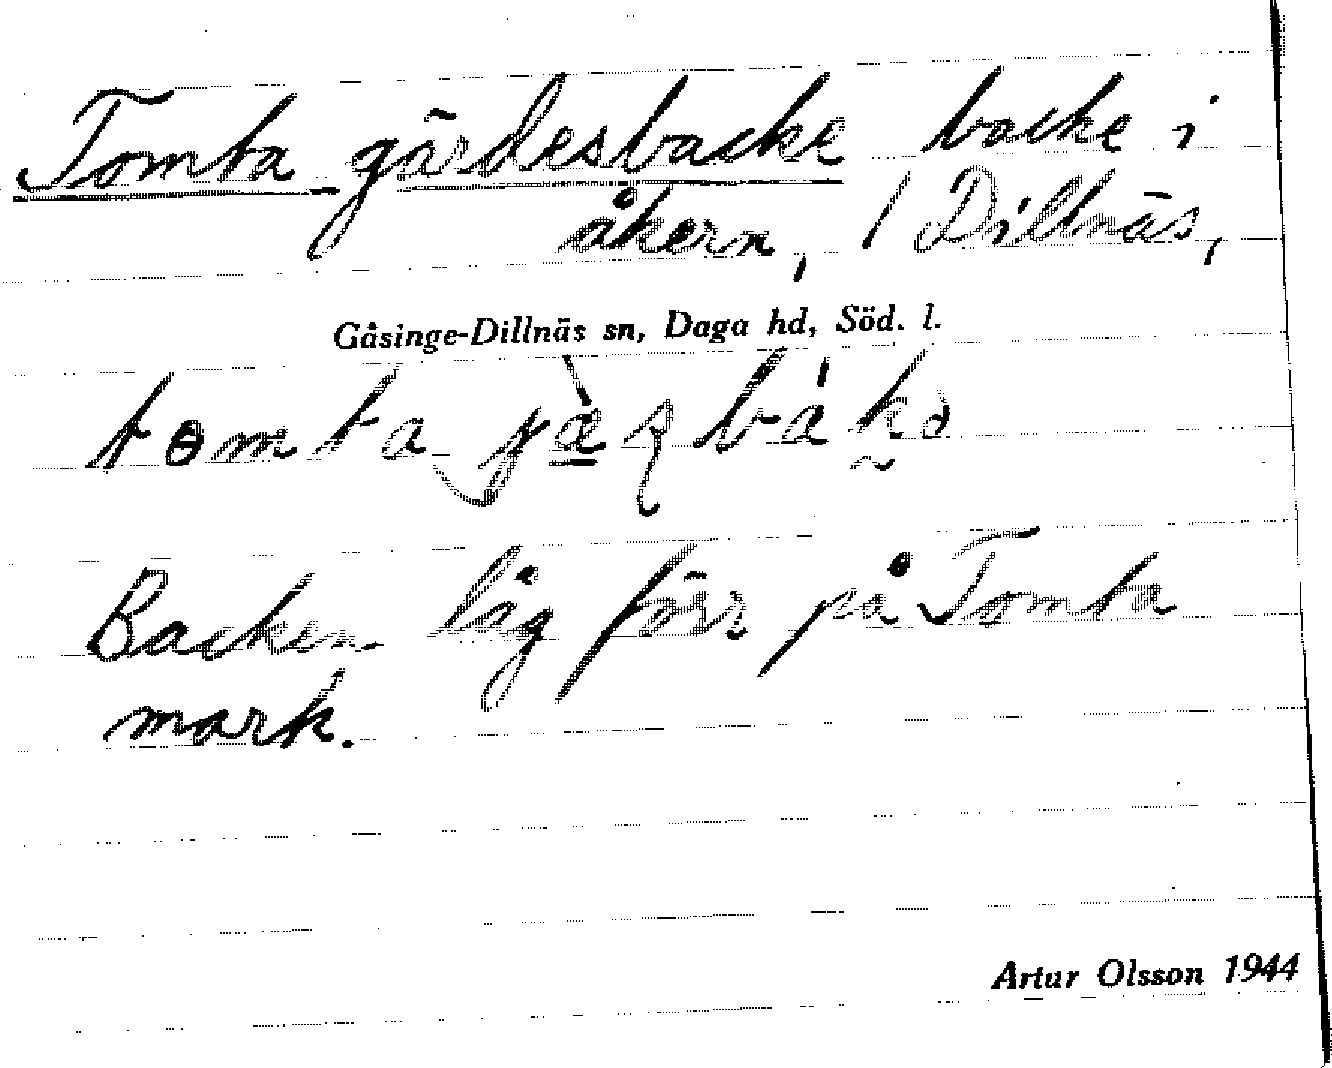 Tomta gärdesbacke backe i
åkern, / Dillnäs,
Gåsinge-Dillnäs sn, Daga hd, Söd. l.
Backen låg förr på Tomta
mark.
Artur Olsson 1944